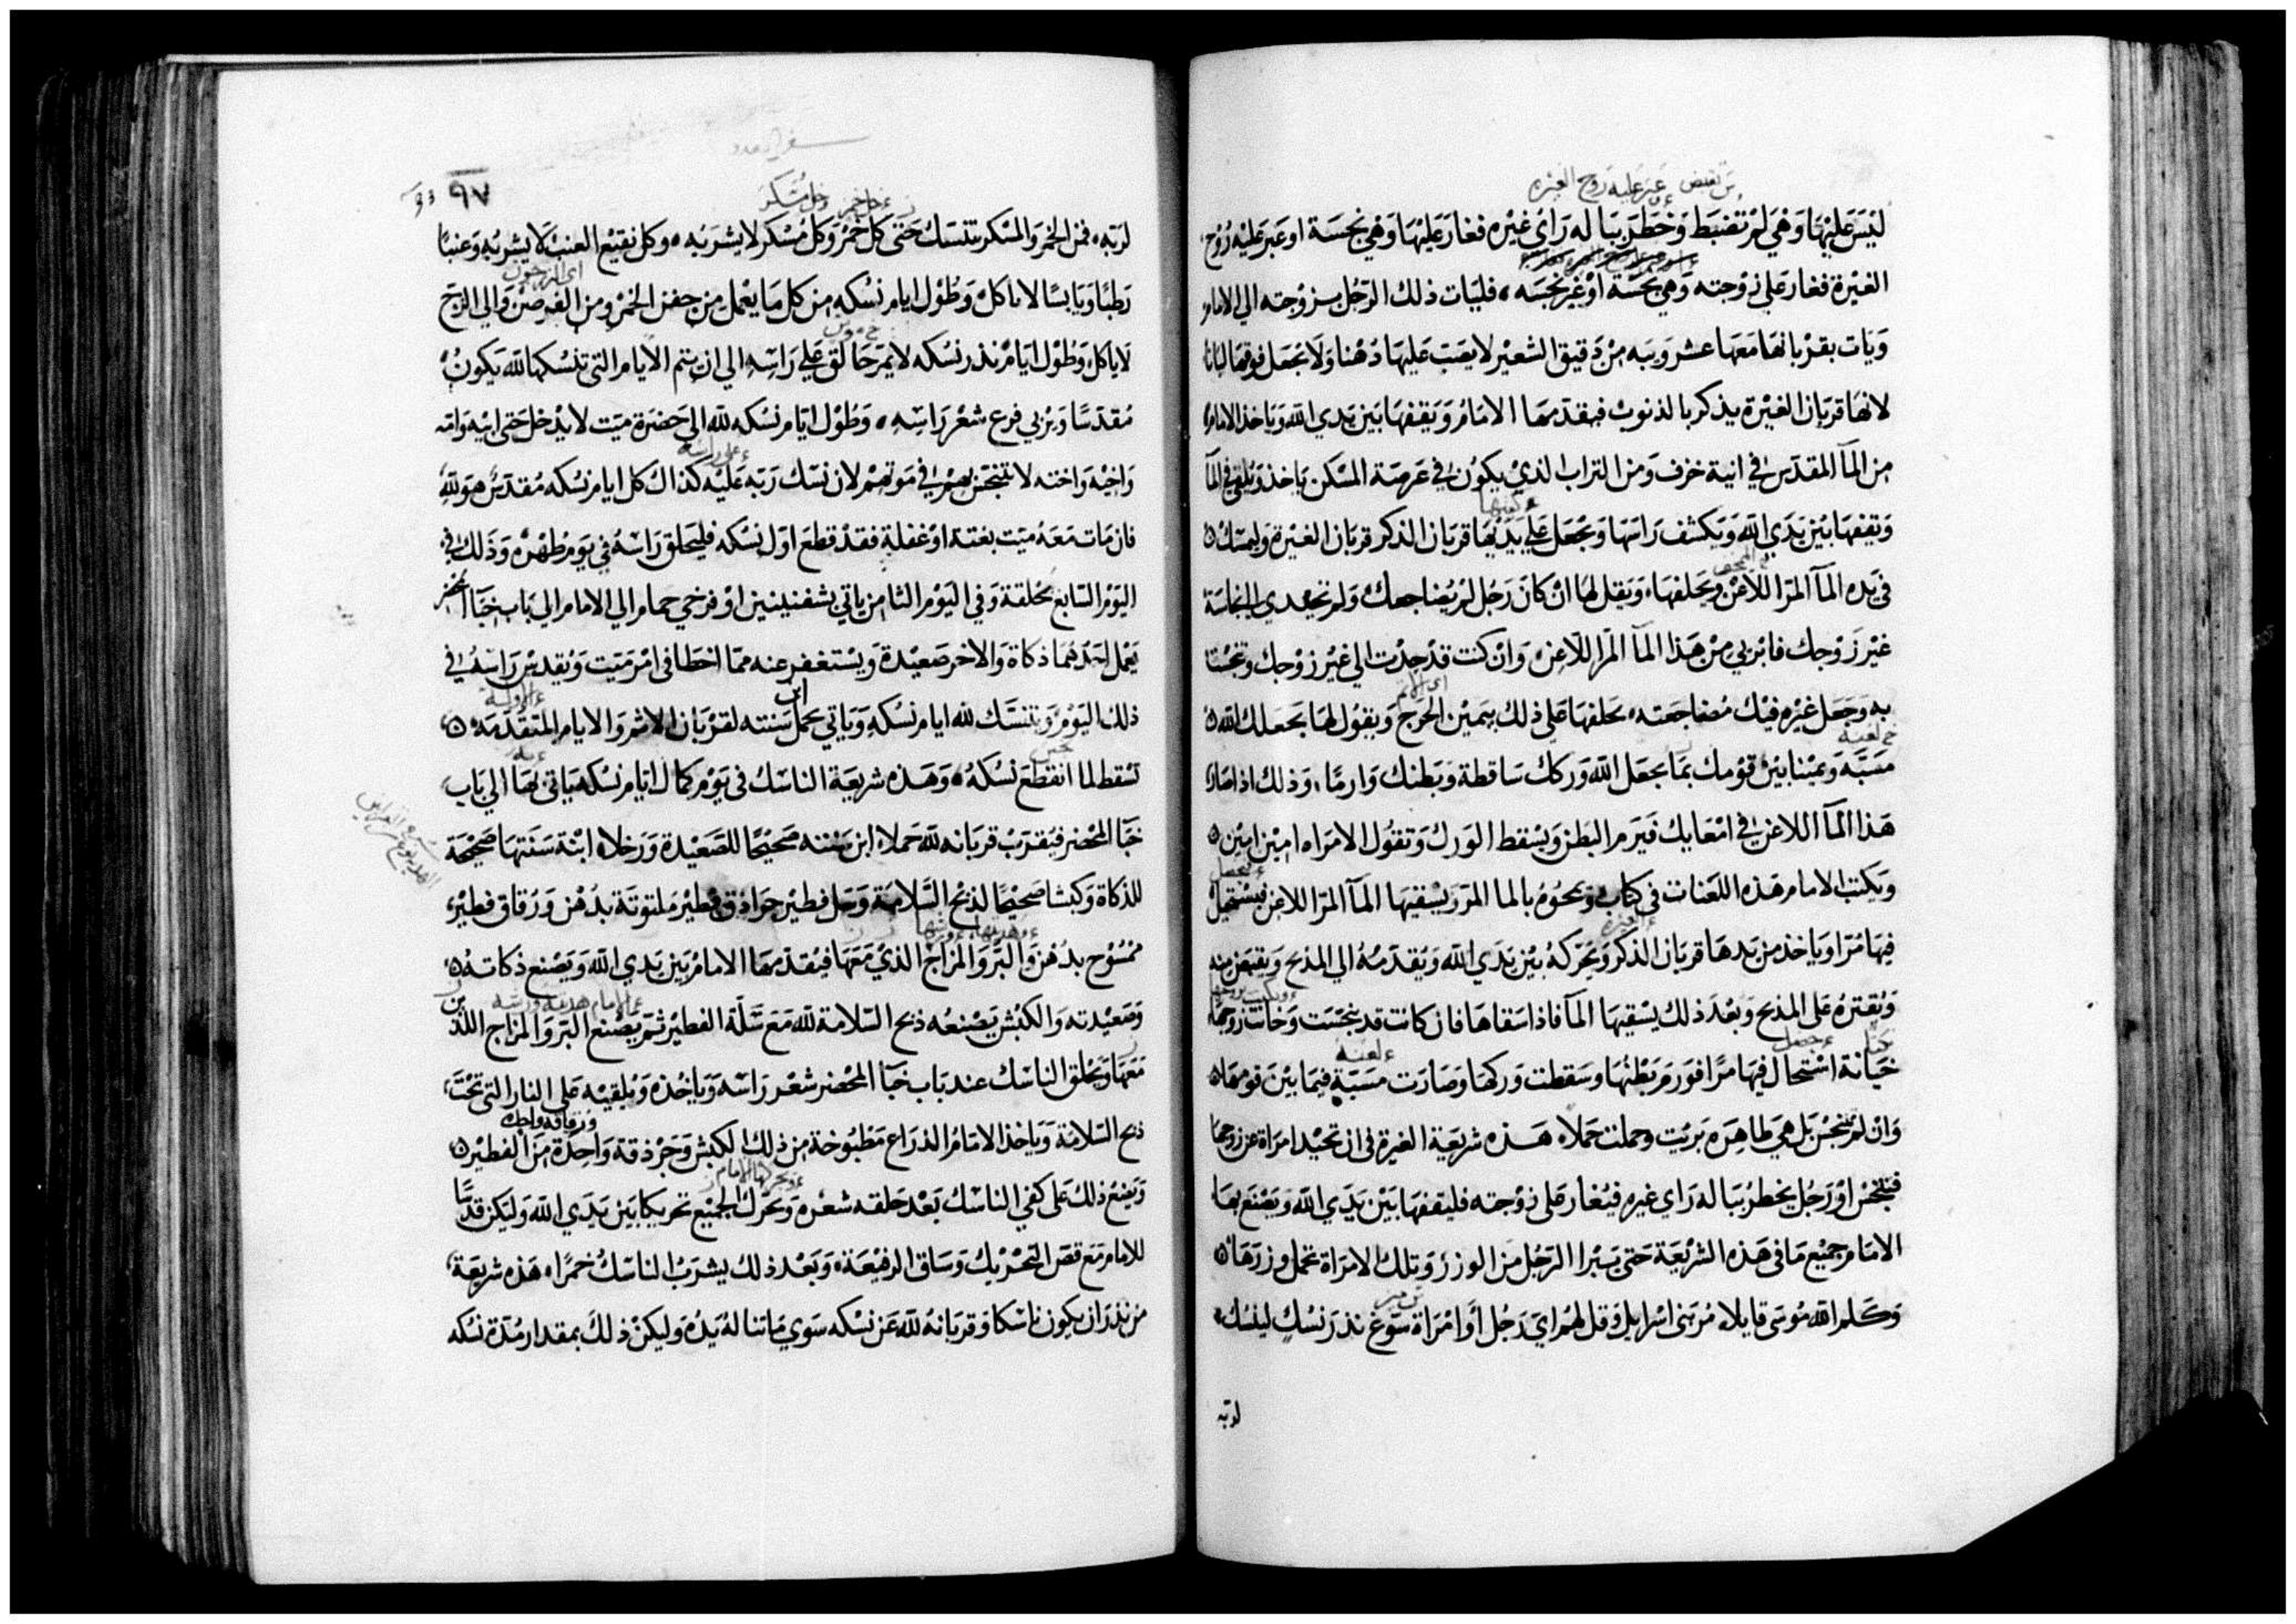 تقبض عبر عليه روح الغيره
ليَس عَليْهَا وَهيَ لم تضبَط وَخطر بَبَا له رَاي غيْره فغار عَليْهَا وَهي نجسَة او عَبر عَليْه رُوْح
الغيْرة فغار عَلي زوْجته وَهي نجسَة أوْ غيْر نجسَه فليَات ذلك الرّجُل بزوْجته الي الامام
وَيَات بقرْبانهَا مَعَهَا عشر وَيبه مِن دَقيق الشعيْر لا يصَب عَليهَا دُهْنا وَلا يجْعَل فوقهَا لبانا
لانهَا قربَان الغيْرة يذكر بالذنوبْ فيقدمهَا الامَامُ وَيَقفهَا بَين يَدي الله وَياخذ الامام
مِن المآ المقدَس في انية خزف وَمن التراب الذيْ يكوُن في عَرصَة المسْكن يَاخذ وَيُلقي في المآ
كفيها
وَيقفهَا بَيْن يَدَي الله وَيَكشف رَاسَهَا وَيجْعَل عَلي يَدَيْهَا قربَان الذكر قربَان الغيْرة وَليمسَك
في يَده المآ المرّ اللاعن وَيحَلفهَا وَيَقل لهَا انْ كان رَجُل لم يُضاجعك وَلم تحِيْدي النجاسَة
غيْر زَوْجك فابْري مِنْ هَذا المآ المرّ اللاعن وَانْ كنت قدْ حِدْت الي غيْر زوْجك وتنجسْت
اى الاثم
به وَجَعَل غيْره فيْك مُضاجَعَته يَحلفهَا عَلي ذلك بيَميْن الحَرج وَيقوُل لهَا يَجعَلك الله
خ لعنة
مسَبَّة وَيَميْنا بَيْن قوْمك بمَا يجعَل الله وَركك سَاقطة وَبَطنك وَارمًا وَذلك اذا صَار
هَذا المآ اللاعن في امْعَايك فيَرم البَطن وَيسْقط الوَرك وَتقوُل الامرَاه امِيْن امِيْن
وَيكتب الامام هَذه اللعَنات في كتاب وَيمحُوُه بالما المرّ وَيسْقيهَا المآ المرّ اللاعن فيسْتحيْل
فيهَا مُرّا وَيَاخذ من يَدهَا قربَان الذكر وَيُحَرّكهُ بَيْن يَدَي الله وَيُقدّمهُ الي المذبح وَيقبَض منه
وَيُقترهُ عَلي المذبح وَبَعْدَ ذلك يسْقيهَا المآ فاذا اسَقاهَا فان كانت قد نجسَت وَخانت زوجهَا
لعنة
خيَانة اسْتحَال فيهَا مرّا فوَرمَ بَطْنهَا وسَقطت وَركهَا وَصَارَت مسَبّة فيمَا بَيْنَ قومهَا
وَانْ لم تنجسْ بَل هيَ طاهِرَه بَريْت وحملت حَملا هَذه شريعَة الغيرة في ان تحيْد امرَاة عن زوجهَا
فتنجسْ اوْ رَجُل يخطرُ ببَا له رَاي غيره فيُغار عَلي زوْجته فليقفهَا بَيْن يَدَي الله وَيَصْنع بهَا
الامَام جميْع مَا في هَذه الشريْعَة حَتي يَبْرا الرّجُل مَن الوزر وَتلك الامرَاة تحمل وزرَهَا
وَكَلم الله مُوسَي قايلا مُر بَني اسْرايل وَقل لهُم اي رَجُل أوَ امْرَاة سَوّغ نذرَ نسْك لينسُك
لربّه

سفر العدد
٩٧
لرَبّه فمن الخمْر وَالمسْكر يتنسَك حَتي كل خَمْر وَكل مُسْكر لا يشرَبُه وكل نقيْع العنب لا يشربُه وَعنبًا
اى الزرجون
رَطبًا وَيَابسًا لا ياكل وَطُوْل ايام نسُكه مِن كل مَا يعْمل مِن جفن الخمْر وِمن الفرصن وَالي الزجّ
لا يَاكل وَطُوْل ايَامْ نذر نسْكه لا يمرّ حَالق عَلي رَاسِه الي ان يتم الايام التي تنسْكهَا لله يَكونُ
مُقدَسًا وَيرْبي فرع شعْر رَاسِه وَطُوْل ايّام نسْكه لله الي حَضرَة ميَت لا يَدْخل حَتي ابيْه وَامّه
على راسه
وَاخيْه وَاختِه لا يتنجّسْ بهمْ في مَوْتهمْ لان نسْك رَبّه عَليْه كذاك كل ايام نسْكه مُقدّسْ هوَ لله
فان مَات مَعَهُ ميَت بغتة اوْ غفلة فقدْ قطعَ اوَل نسْكه فليَحلق رَاسَهُ في يوَم طهْره وَذلك في
اليَوْم السّابع يحْلقه وَفي اليَوْم الثامِن يَاتي بشفنينيْن اوْ فرخي حَمام الي الامام الي بَاب خبَآ المحْضر
يَعْمَل احَدَهُما ذكاة وَالاخر صَعيْدة وَيسْتغفر عنه ممّا اخطا في امْر ميَت وَيُقدسْ رَاسهُ في
ذلك اليَوْم وَيتنسَّك لله ايام نسْكه وَيَاتي بحَمل ابن سَنته لقرْبَان الاثم وَالايام المتقدّمَة
تسْقط لما انقطعَ نسْكهُ وَهَذه شريعَة الناسْك في يَوْم كمال ايَام نسْكه يَاتي بهَا الي بَاب
خبَآ المحْضر فيُقرّبْ قربَانه لله حَملا ابن سَنته صَحيْحًا للصَّعيْدة وَرَخلاه ابْنة سَنتهَا صَحيْحَة
للذكاة وَكبشا صَحيْحًا لذبح السَّلامَة وَسَل فطيْر جَرَاذق فطيْر مَلتوتَة بدُهْن وَرُقاق فطيْر
ممْسُوْح بدُهْن وَالبرّ وَالمزاج الذيْ مَعَهَا فيُقدّمهَا الامامُ بَين يَدي الله وَيَصْنع ذكاتهُ
الامام هديته ورشه
وَصَعيْدته وَالكبْش يَصْنعُه ذبح السّلامة لله مَعَ سَلّة الفطيْر ثمّ يَصْنع البرّ وَالمزاج اللذين
مَعَهَا وَيَحْلق الناسْك عند بَاب خبَآ المحْضر شعْر رَاسَه وَيَاخُذه وَيُلقيْه عَلي النار التي تحْتَ
ورقاقه واحدة
ذبح السّلامَة وَيَاخذ الامَامُ الذرَاع مَطْبُوخة مِن ذلك الكبش وَجَرْذقة وَاحِدَة مِنَ الفطيْر
ويحركها الامام
وَيَضعْ ذلك عَلي كفي الناسْك بَعْد حَلقه شعْره وَيَحرّك الجميْع تحريكا بَيْن يَدَي الله وَليَكن قدسًا
للامام مَع قصَ التحْريْك وَسَاق الرفيْعَة وَبَعْد ذلك يشرَبُ الناسْك خمرًا هَذه شريْعَة
من نذرَ ان يكون ناسْكا وَقربَانهُ لله عَن نسْكه سَوي مَا تنالهُ يَدُه وَليكنْ ذلك بمقدار مُدّة نسْكه